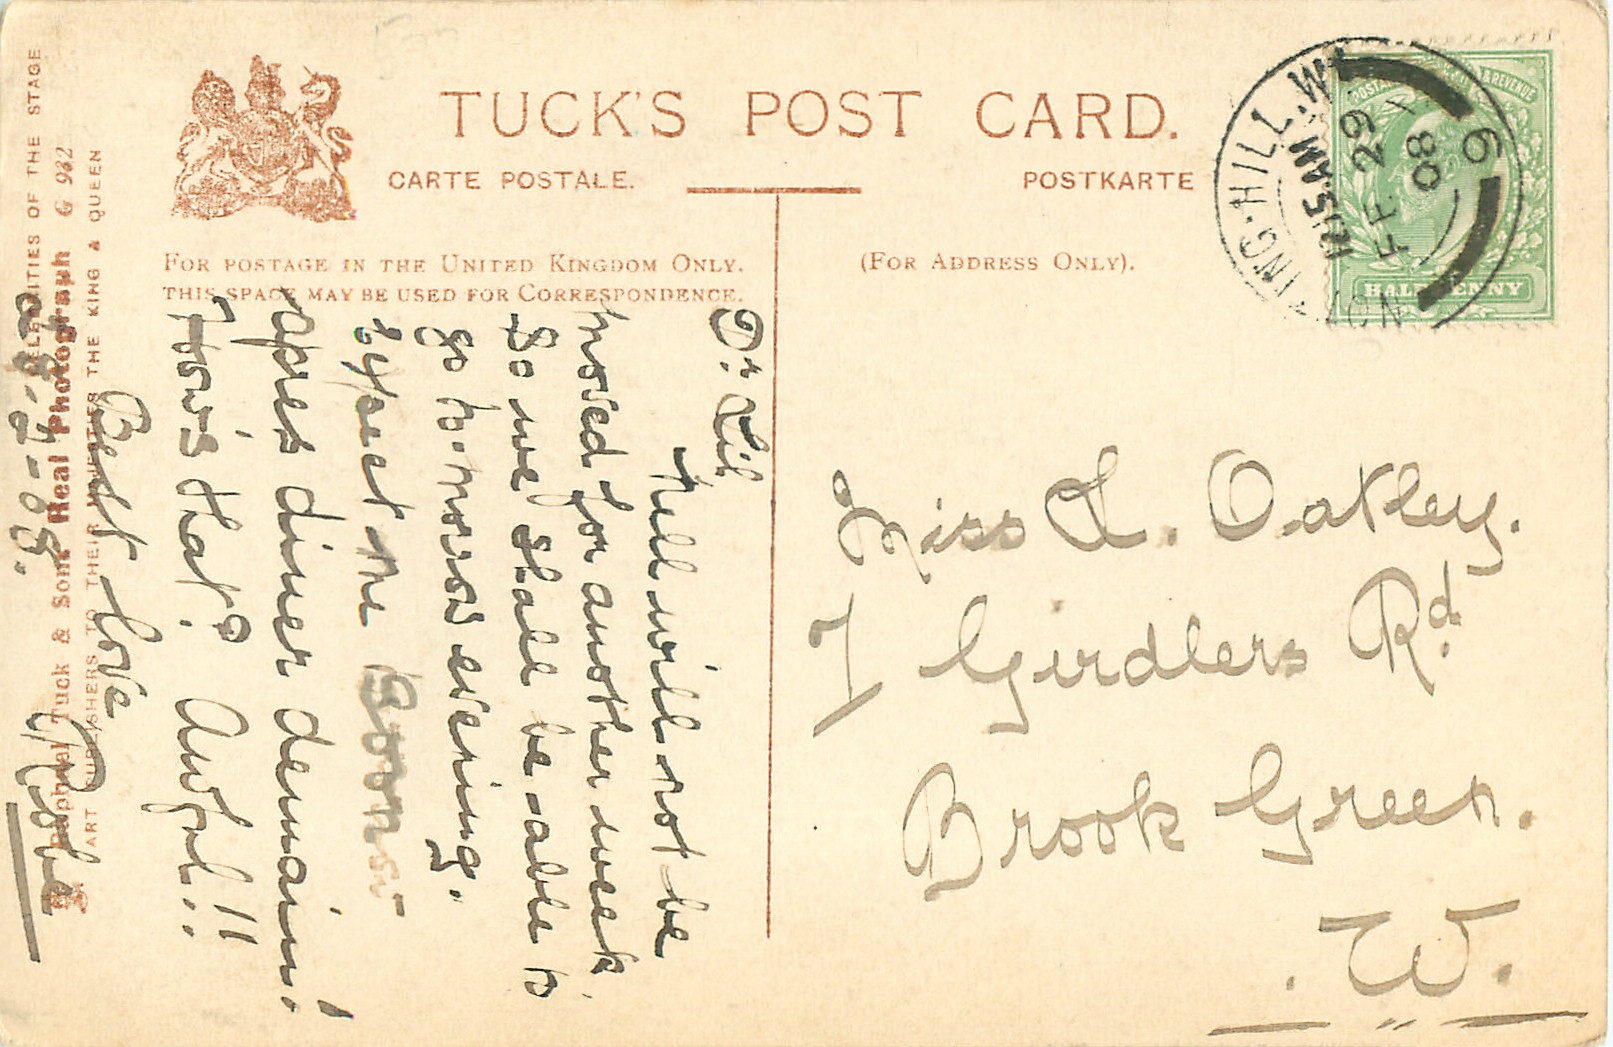 TUCK'S POST CARD.
CARTE POSTALE.
POSTKARTE
FOR POSTAGE IN THE UNITED KINGDOM ONLY.
THIS SPACE MAY BE USED FOR CORRESPONDENCE.
(FOR ADDRESS ONLY).
POSTAGE & REVENUE
HALFPENNY
ING·HILL.W
12.15.AM
FE 29
08
6
Dr Lil
Nell will not be
moved for another week
So we shall be able to
go to-morrow evening.
"expect me
après diner demain!
How's that? Awful!!
Best love
Robe
CELEBRITIES OF THE STAGE
Raphael Tuck & Sons Real Photograph G 982
ART PUBLISHERS TO THEIR MAJESTIES THE KING & QUEEN
Miss L. Oakley.
7 Girdlers Rd
Brook Green.
W.